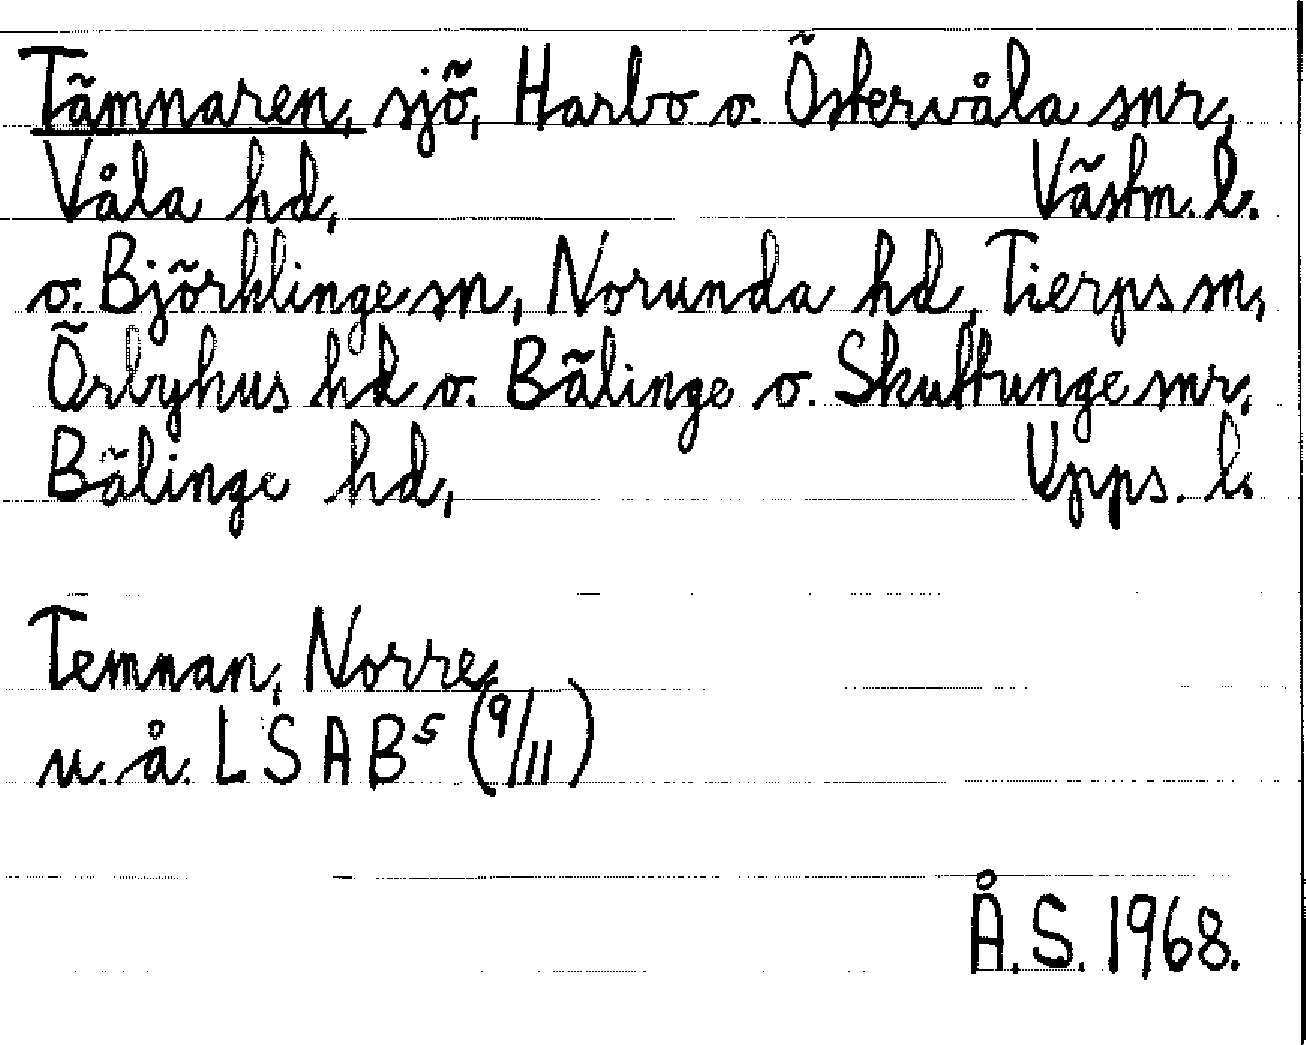 Tämnaren, sjö, Harbo o. Östervåla snr,
Våla hd, Västm. l.
o. Björklinge sn, Norunda hd, Tierps sn,
Örbyhus hd o. Bälinge o. Skuttunge snr,
Bälinge hd, Upps. l.
Temnan, Norre,
u. å. LSA B⁵ (9/11)
Å.S. 1968.